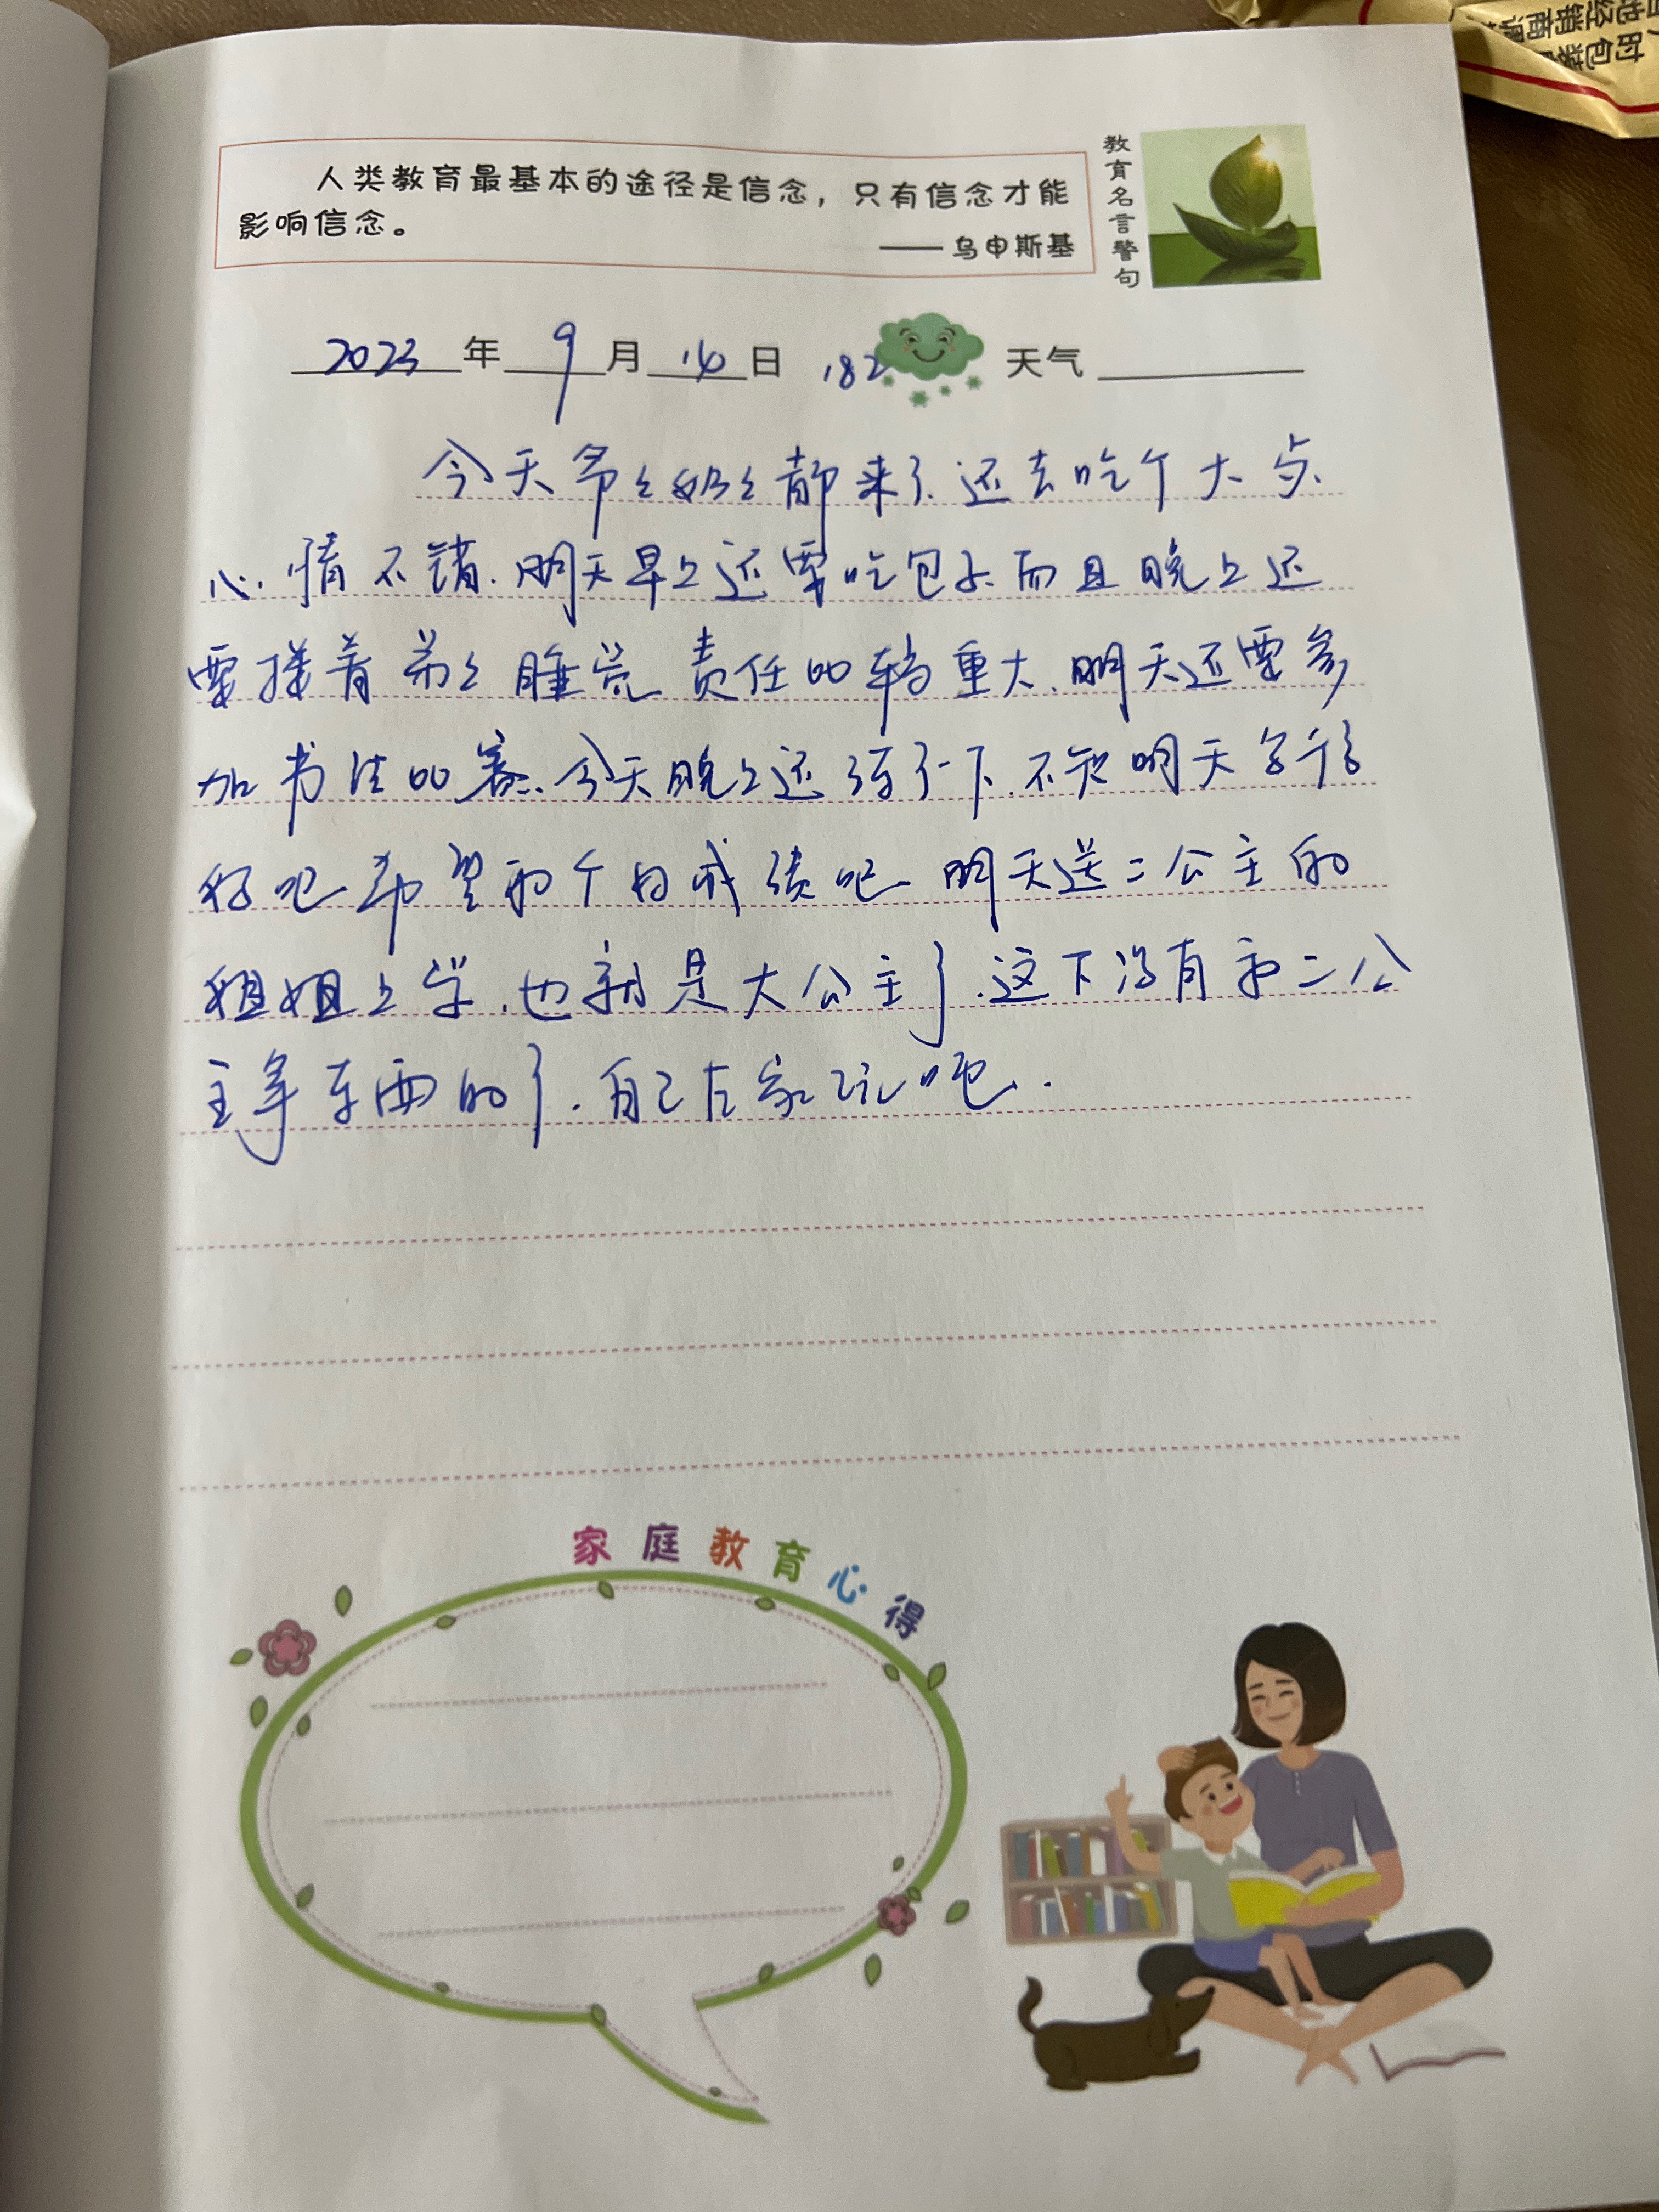 人类教育最基本的途径是信念，只有信念才能
影响信念。
—— 乌申斯基
教育名言警句
2023年9月14日 182 天气
今天爷々奶々都来了.还去吃个大点.
心情不错.明天早上还要吃包子.而且晚上还
要搂着弟々睡觉 责任的确重大.明天还要参
加书法比赛.今天晚上还练了一下.不知明天
好吧 希望 个好成绩吧 明天送二公主的
姐姐上学.也就是大公主了.这下没有和二公
主争东西的了.自己在家玩吧.
家庭教育心得